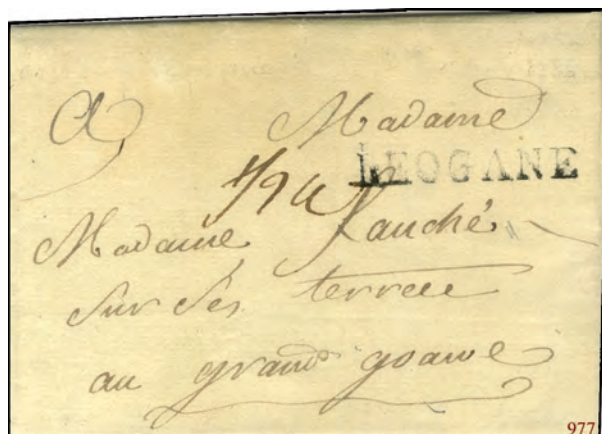 A Madame
LEOGANE
Madame Fauché
Sur Ses terres
au grand goave
977